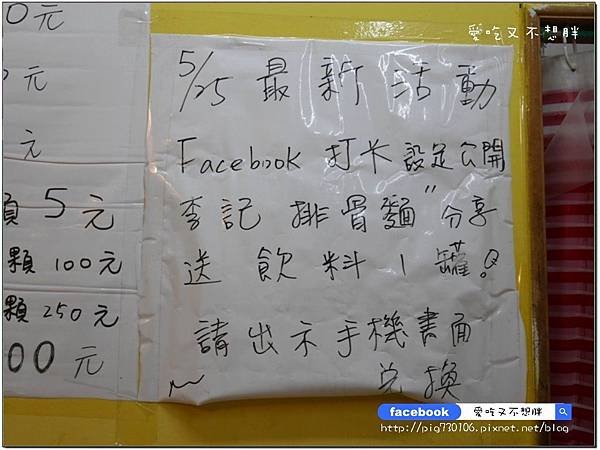 愛吃又不想胖
0元
元
元
顆5元
顆100元
顆250元
00元
5/25 最新活動
Facebook 打卡設定公開
李記 排骨麵"分享
送 飲料1罐。
請出示手機畫面
兌換
facebook 愛吃又不想胖
http://pig730106.pixnet.net/blog